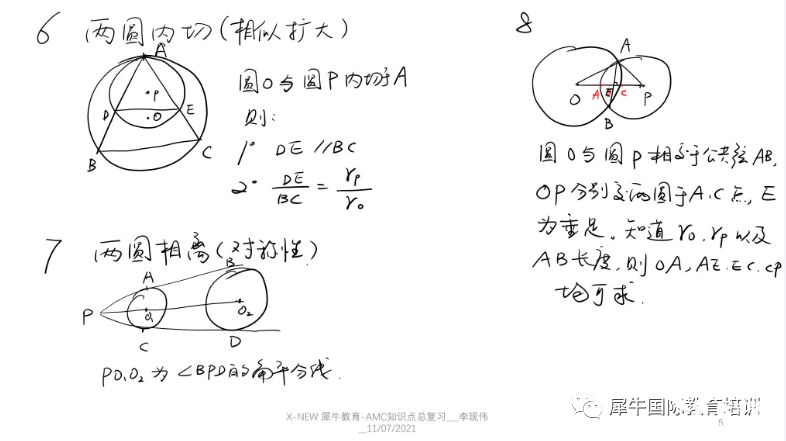 6 两圆内切(相似扩大)
A
P
D
O
E
B
C
圆O与圆P内切于A
则:
1° DE//BC
2° DE/BC = rp/ro
7 两圆相离(对称性)
A
B
P
O₁
O₂
C
D
PO₁O₂为∠BPD的角平分线.
8
A
O
A
E
C
P
B
圆O与圆P相交于公共弦AB,
OP分别交两圆于A.C点, E
为垂足。知道ro.rp以及
AB长度,则OA,AE.EC.CP
均可求.
X-NEW 犀牛教育-AMC知识点总复习__李现伟
__11/07/2021
5
犀牛国际教育培训